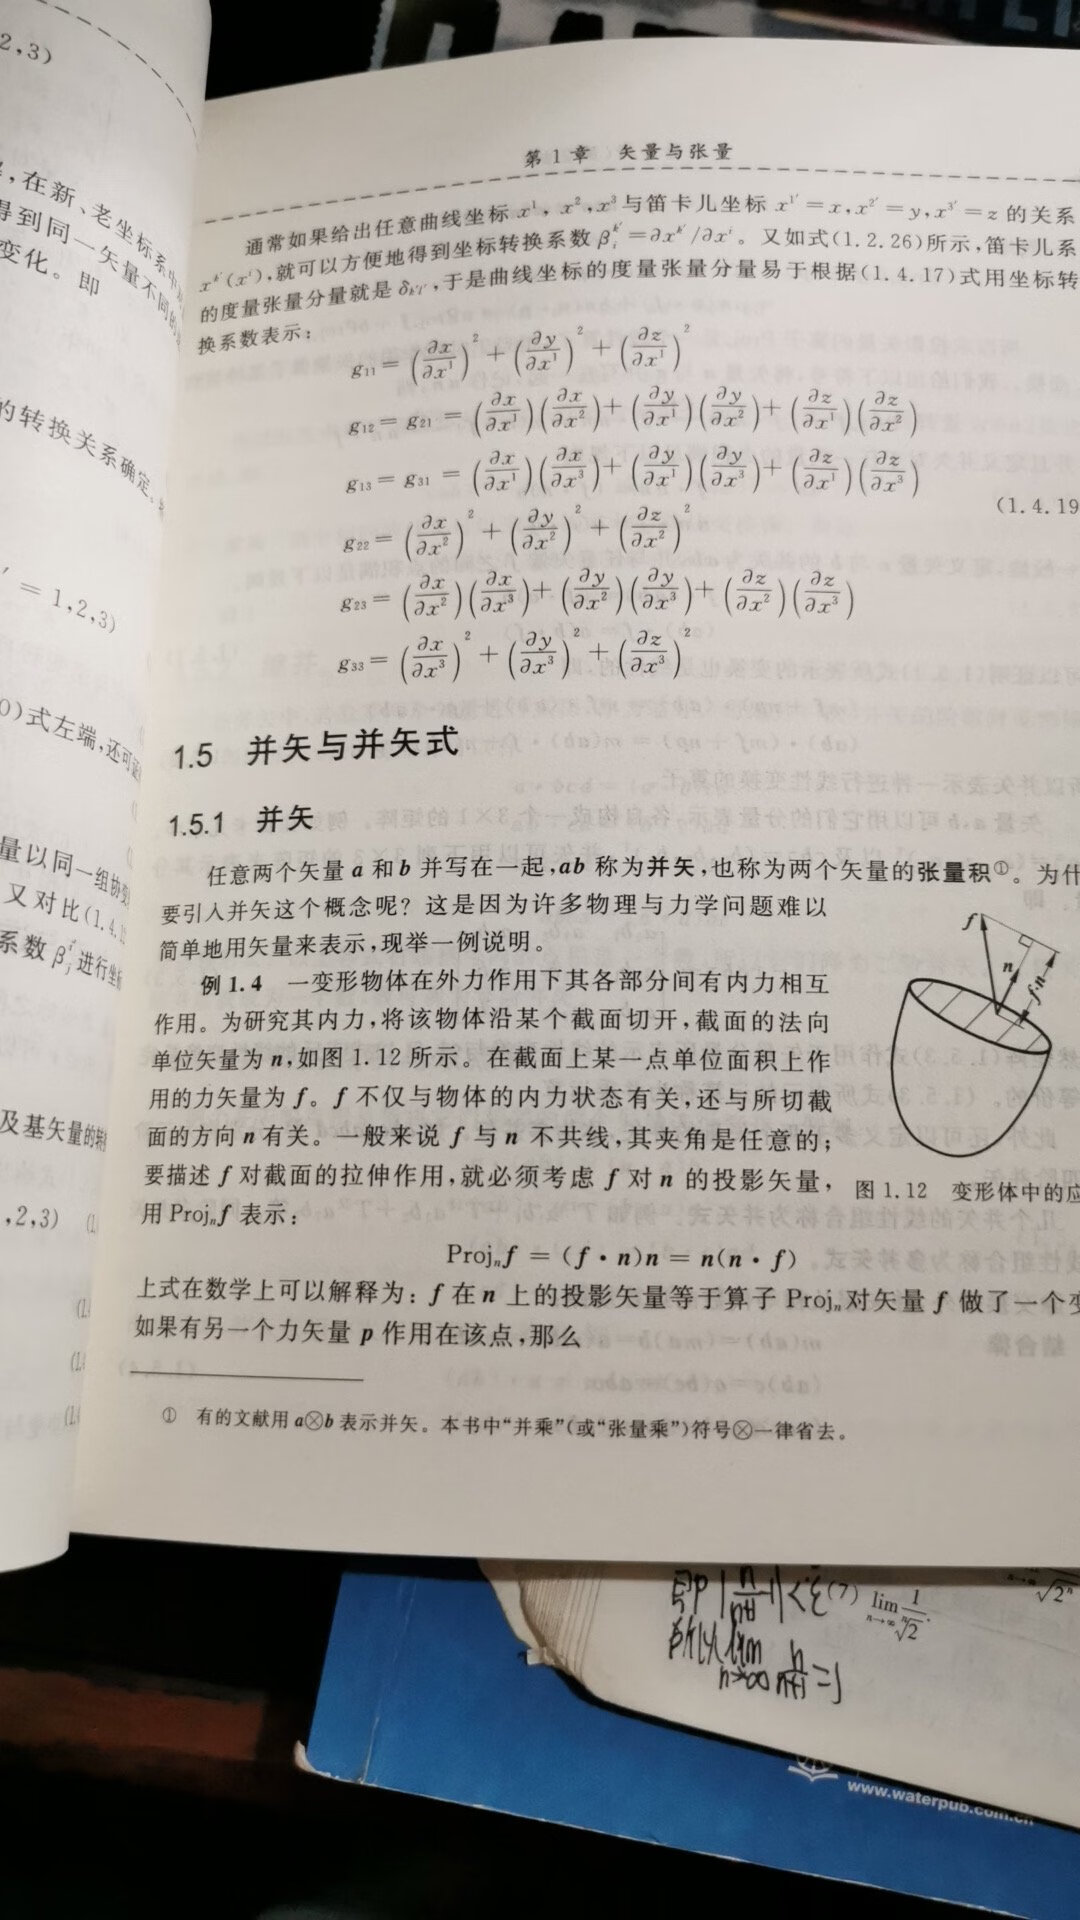 2,3)
,在新、老坐标系中
得到同一矢量不同的
变化。即
的转换关系确定。
′ = 1,2,3)
0)式左端,还可
量以同一组协变
又对比(1.4.
系数 β 进行坐
及基矢量的转
,2,3)
第 1 章 矢量与张量
通常如果给出任意曲线坐标 x¹, x²,x³与笛卡儿坐标 x¹′=x,x²′=y,x³′=z 的关系
xᵏ′(xⁱ),就可以方便地得到坐标转换系数 βᵢᵏ′=∂xᵏ′/∂xⁱ。又如式(1.2.26)所示,笛卡儿系
的度量张量分量就是 δₖ′ₗ′,于是曲线坐标的度量张量分量易于根据(1.4.17)式用坐标转
换系数表示:
g₁₁ = (∂x/∂x¹)² + (∂y/∂x¹)² + (∂z/∂x¹)²
g₁₂ = g₂₁ = (∂x/∂x¹)(∂x/∂x²) + (∂y/∂x¹)(∂y/∂x²) + (∂z/∂x¹)(∂z/∂x²)
g₁₃ = g₃₁ = (∂x/∂x¹)(∂x/∂x³) + (∂y/∂x¹)(∂y/∂x³) + (∂z/∂x¹)(∂z/∂x³)
(1.4.19
g₂₂ = (∂x/∂x²)² + (∂y/∂x²)² + (∂z/∂x²)²
g₂₃ = (∂x/∂x²)(∂x/∂x³) + (∂y/∂x²)(∂y/∂x³) + (∂z/∂x²)(∂z/∂x³)
g₃₃ = (∂x/∂x³)² + (∂y/∂x³)² + (∂z/∂x³)²
1.5 并矢与并矢式
1.5.1 并矢
任意两个矢量 a 和 b 并写在一起,ab 称为并矢,也称为两个矢量的张量积①。为什
要引入并矢这个概念呢?这是因为许多物理与力学问题难以
简单地用矢量来表示,现举一例说明。
例 1.4 一变形物体在外力作用下其各部分间有内力相互
作用。为研究其内力,将该物体沿某个截面切开,截面的法向
单位矢量为 n,如图 1.12 所示。在截面上某一点单位面积上作
用的力矢量为 f。f 不仅与物体的内力状态有关,还与所切截
面的方向 n 有关。一般来说 f 与 n 不共线,其夹角是任意的;
要描述 f 对截面的拉伸作用,就必须考虑 f 对 n 的投影矢量,
用 Projₙf 表示:
f
n
f·n
图 1.12 变形体中的应
Projₙf = (f · n)n = n(n · f)
上式在数学上可以解释为:f 在 n 上的投影矢量等于算子 Projₙ 对矢量 f 做了一个变
如果有另一个力矢量 p 作用在该点,那么
① 有的文献用 a⊗b 表示并矢。本书中“并乘”(或“张量乘”)符号⊗一律省去。
(7) lim n→∞ 1/ⁿ√2.
所以 lim n→∞ n/n+1 =1
www.waterpub.com.cn